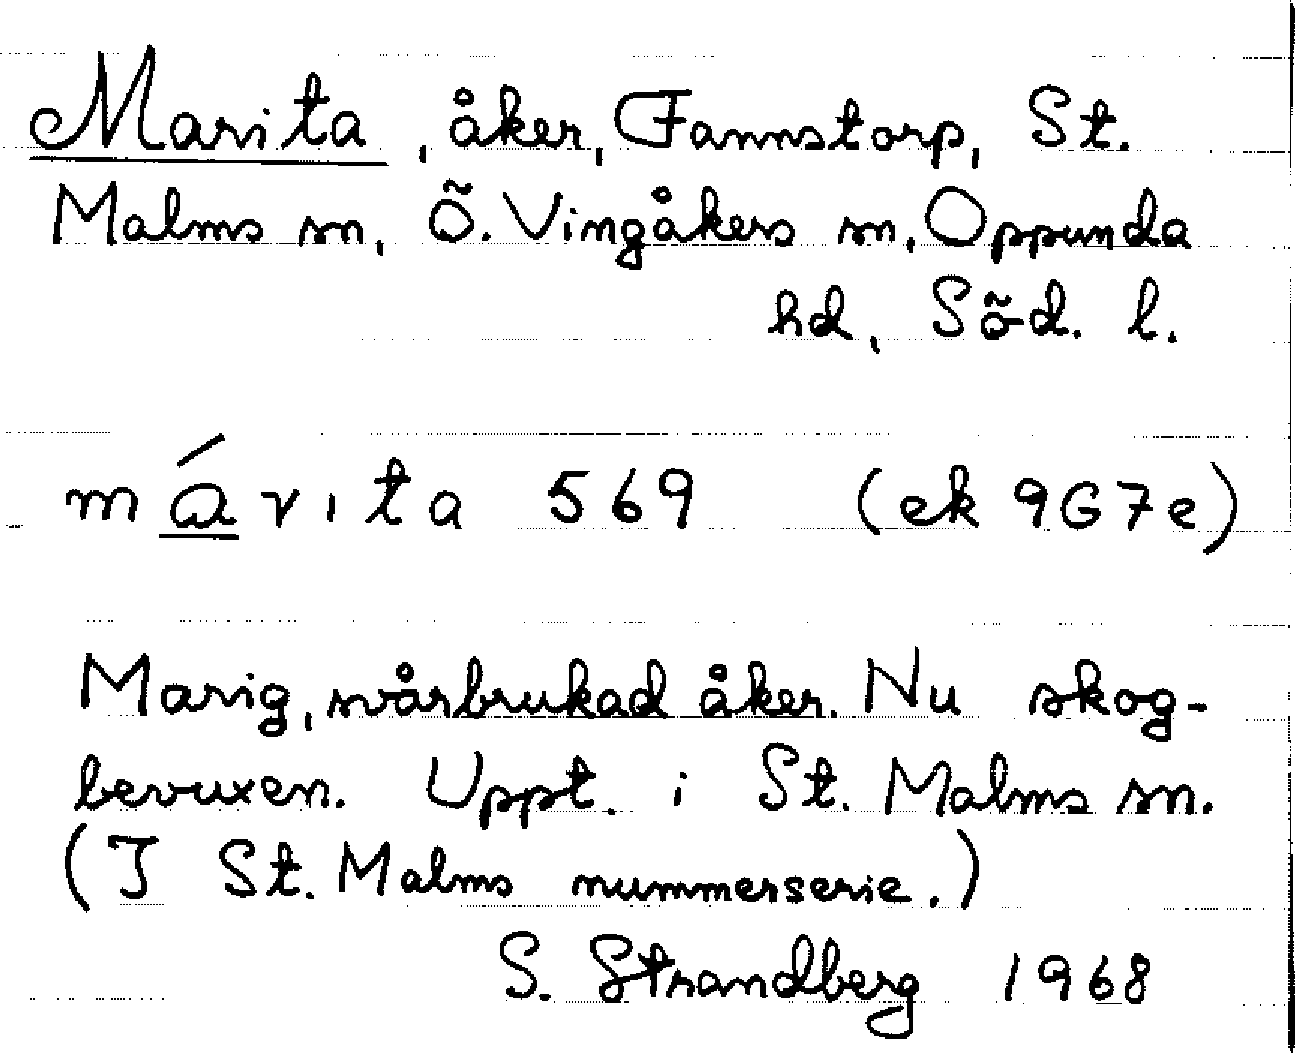 Marita, åker, Fannstorp, St.
Malms sn, Ö. Vingåkers sn, Oppunda
hd, Söd. l.
mávıta 569 (ek 9G7e)
Marig, svårbrukad åker. Nu skog-
bevuxen. Uppt. i St. Malms sn.
(I St. Malms nummerserie.)
S. Strandberg 1968